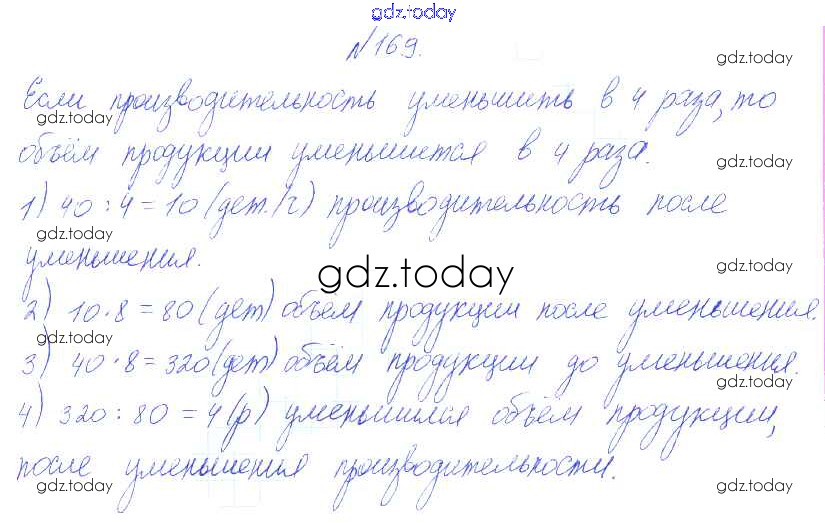 gdz.today
№169.
gdz.today
Если производительность уменьшить в 4 раза, то
gdz.today
объём продукции уменьшится в 4 раза.
gdz.today
1) 40 : 4 = 10 (дет./ч) производительность после
gdz.today
уменьшения.
gdz.today
gdz.today
2) 10 · 8 = 80 (дет) объём продукции после уменьшения.
gdz.today
gdz.today
3) 40 · 8 = 320 (дет) объём продукции до уменьшения.
gdz.today
4) 320 : 80 = 4 (р) уменьшился объём продукции,
после уменьшения производительности.
gdz.today
gdz.today